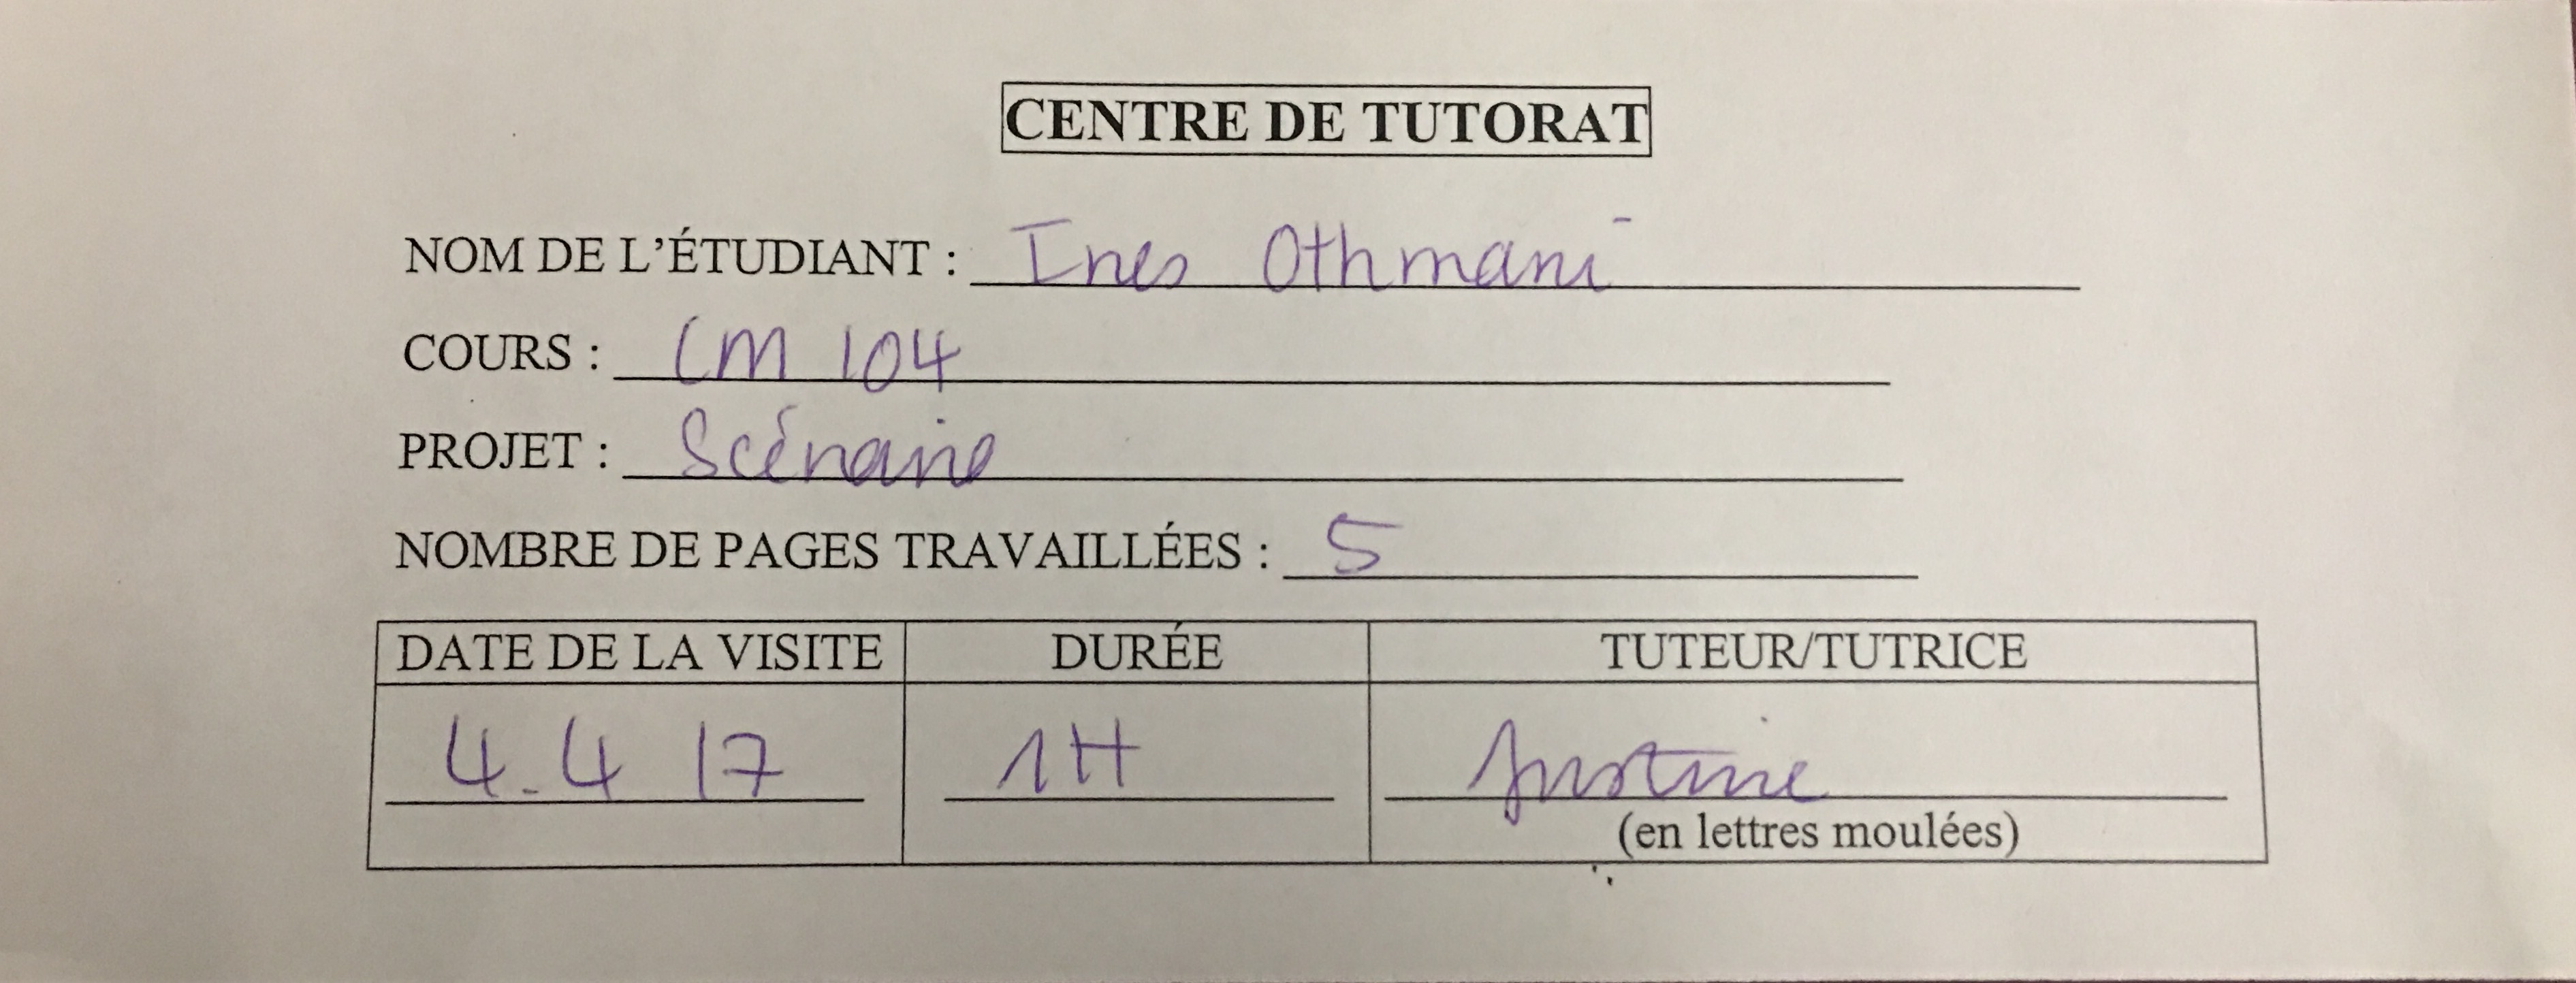 CENTRE DE TUTORAT
NOM DE L'ÉTUDIANT : Ines Othmani
COURS : CM 104
PROJET : Scénario
NOMBRE DE PAGES TRAVAILLÉES : 5
DATE DE LA VISITE DURÉE TUTEUR/TUTRICE
4.4 17 1H Justine
(en lettres moulées)